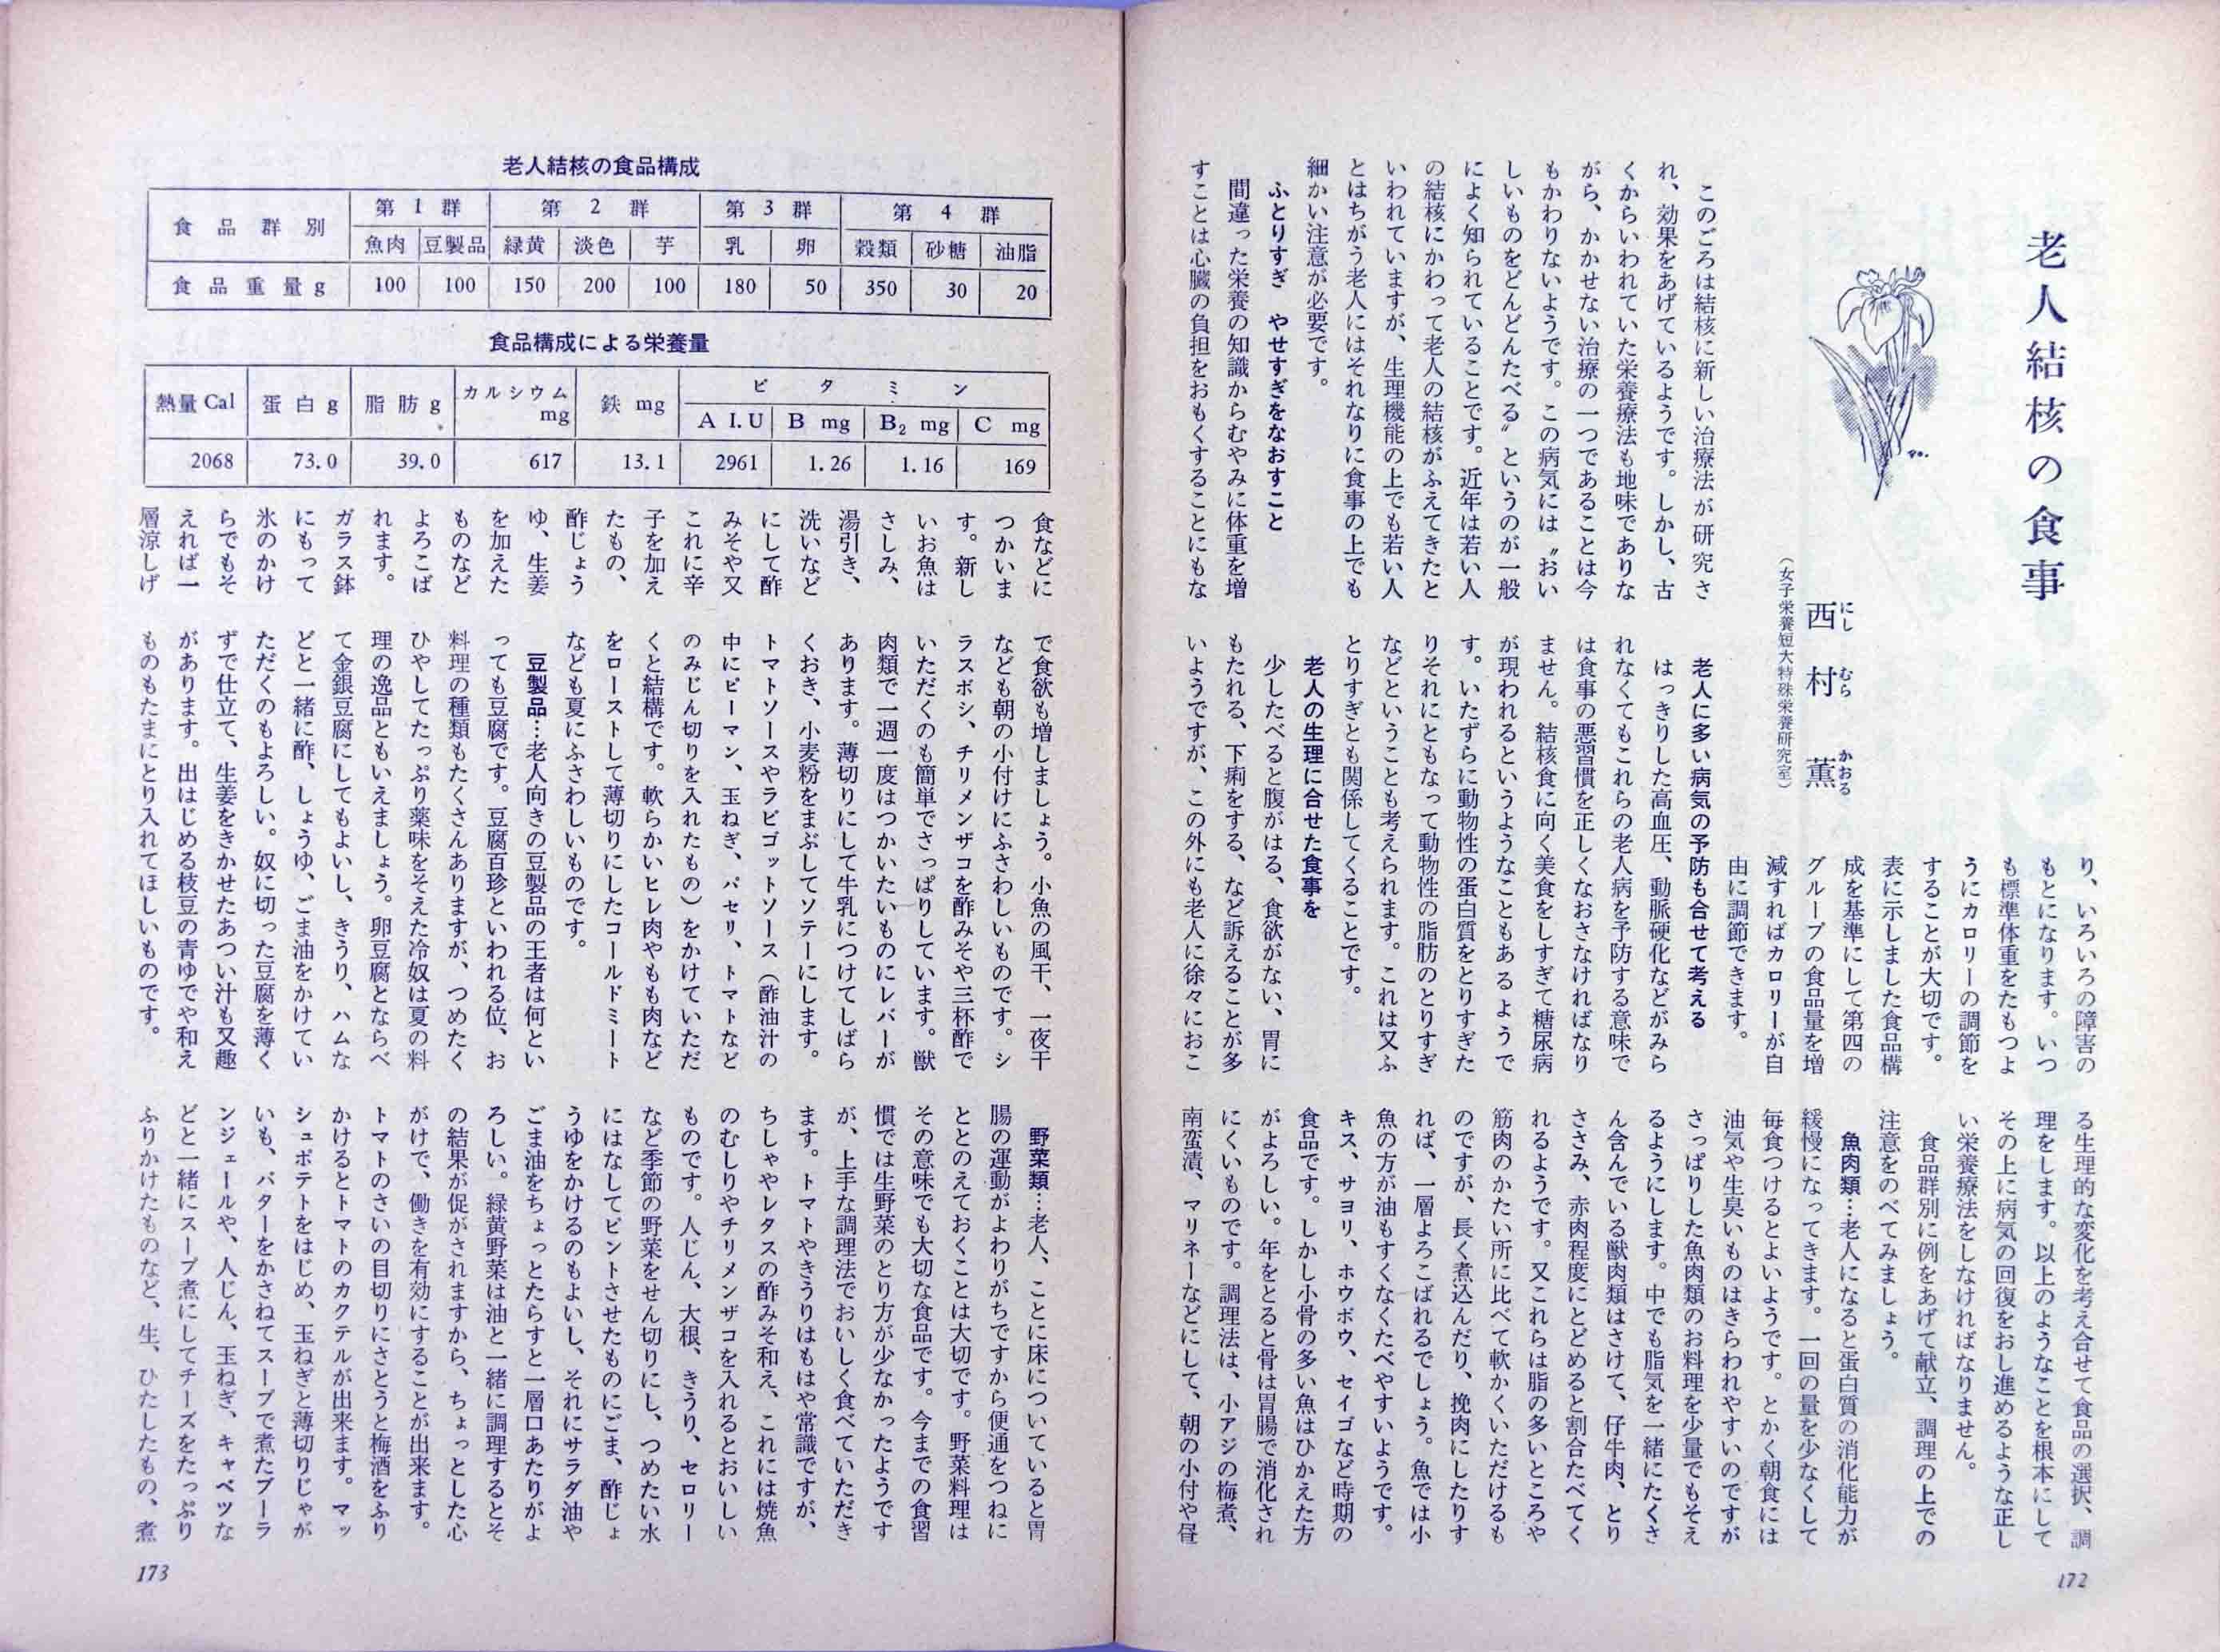 老人結核の食事
西村　薫
にし　むら　かおる
（女子栄養短大特殊栄養研究室）
このごろは結核に新しい治療法が研究さ
れ、効果をあげているようです。しかし、古
くからいわれていた栄養療法も地味でありな
がら、かかせない治療の一つであることは今
もかわりないようです。この病気には〝おい
しいものをどんどんたべる〟というのが一般
によく知られていることです。近年は若い人
の結核にかわって老人の結核がふえてきたと
いわれていますが、生理機能の上でも若い人
とはちがう老人にはそれなりに食事の上でも
細かい注意が必要です。
ふとりすぎ　やせすぎをなおすこと
間違った栄養の知識からむやみに体重を増
すことは心臓の負担をおもくすることにもな
り、いろいろの障害の
もとになります。いつ
も標準体重をたもつよ
うにカロリーの調節を
することが大切です。
表に示しました食品構
成を基準にして第四の
グループの食品量を増
減すればカロリーが自
由に調節できます。
老人に多い病気の予防も合せて考える
はっきりした高血圧、動脈硬化などがみら
れなくてもこれらの老人病を予防する意味で
は食事の悪習慣を正しくなおさなければなり
ません。結核食に向く美食をしすぎて糖尿病
が現われるというようなこともあるようで
す。いたずらに動物性の蛋白質をとりすぎた
りそれにともなって動物性の脂肪のとりすぎ
などということも考えられます。これは又ふ
とりすぎとも関係してくることです。
老人の生理に合せた食事を
少したべると腹がはる、食欲がない、胃に
もたれる、下痢をする、など訴えることが多
いようですが、この外にも老人に徐々におこ
る生理的な変化を考え合せて食品の選択、調
理をします。以上のようなことを根本にして
その上に病気の回復をおし進めるような正し
い栄養療法をしなければなりません。
食品群別に例をあげて献立、調理の上での
注意をのべてみましょう。
魚肉類…老人になると蛋白質の消化能力が
緩慢になってきます。一回の量を少なくして
毎食つけるとよいようです。とかく朝食には
油気や生臭いものはきらわれやすいのですが
さっぱりした魚肉類のお料理を少量でもそえ
るようにします。中でも脂気を一緒にたくさ
ん含んでいる獣肉類はさけて、仔牛肉、とり
ささみ、赤肉程度にとどめると割合たべてく
れるようです。又これらは脂の多いところや
筋肉のかたい所に比べて軟かくいただけるも
のですが、長く煮込んだり、挽肉にしたりす
れば、一層よろこばれるでしょう。魚では小
魚の方が油もすくなくたべやすいようです。
キス、サヨリ、ホウボウ、セイゴなど時期の
食品です。しかし小骨の多い魚はひかえた方
がよろしい。年をとると骨は胃腸で消化され
にくいものです。調理法は、小アジの梅煮、
南蛮漬、マリネーなどにして、朝の小付や昼
172
老人結核の食品構成
食品群別　第1群　第2群　第3群　第4群
魚肉　豆製品　緑黄　淡色　芋　乳　卵　穀類　砂糖　油脂
食品重量g　100　100　150　200　100　180　50　350　30　20
食品構成による栄養量
熱量 Cal　蛋白 g　脂肪 g　カルシウム mg　鉄 mg　ビタミン
A I.U　B mg　B₂ mg　C mg
2068　73.0　39.0　617　13.1　2961　1.26　1.16　169
食などに
つかいま
す。新し
いお魚は
さしみ、
湯引き、
洗いなど
にして酢
みそや又
これに辛
子を加え
たもの、
酢じょう
ゆ、生姜
を加えた
ものなど
よろこば
れます。
ガラス鉢
にもって
氷のかけ
らでもそ
えれば一
層涼しげ
で食欲も増しましょう。小魚の風干、一夜干
なども朝の小付けにふさわしいものです。シ
ラスボシ、チリメンザコを酢みそや三杯酢で
いただくのも簡単でさっぱりしています。獣
肉類で一週一度はつかいたいものにレバーが
あります。薄切りにして牛乳につけてしばら
くおき、小麦粉をまぶしてソテーにします。
トマトソースやラビゴットソース（酢油汁の
中にピーマン、玉ねぎ、パセリ、トマトなど
のみじん切りを入れたもの）をかけていただ
くと結構です。軟らかいヒレ肉やもも肉など
をローストして薄切りにしたコールドミート
なども夏にふさわしいものです。
豆製品…老人向きの豆製品の王者は何とい
っても豆腐です。豆腐百珍といわれる位、お
料理の種類もたくさんありますが、つめたく
ひやしてたっぷり薬味をそえた冷奴は夏の料
理の逸品ともいえましょう。卵豆腐とならべ
て金銀豆腐にしてもよいし、きうり、ハムな
どと一緒に酢、しょうゆ、ごま油をかけてい
ただくのもよろしい。奴に切った豆腐を薄く
ずで仕立て、生姜をきかせたあつい汁も又趣
があります。出はじめる枝豆の青ゆでや和え
ものもたまにとり入れてほしいものです。
野菜類…老人、ことに床についていると胃
腸の運動がよわりがちですから便通をつねに
ととのえておくことは大切です。野菜料理は
その意味でも大切な食品です。今までの食習
慣では生野菜のとり方が少なかったようです
が、上手な調理法でおいしく食べていただき
ます。トマトやきうりはもはや常識ですが、
ちしゃやレタスの酢みそ和え、これには焼魚
のむしりやチリメンザコを入れるとおいしい
ものです。人じん、大根、きうり、セロリー
など季節の野菜をせん切りにし、つめたい水
にはなしてピントさせたものにごま、酢じょ
うゆをかけるのもよいし、それにサラダ油や
ごま油をちょっとたらすと一層口あたりがよ
ろしい。緑黄野菜は油と一緒に調理するとそ
の結果が促がされますから、ちょっとした心
がけで、働きを有効にすることが出来ます。
トマトのさいの目切りにさとうと梅酒をふり
かけるとトマトのカクテルが出来ます。マッ
シュポテトをはじめ、玉ねぎと薄切りじゃが
いも、バターをかさねてスープで煮たブーラ
ンジェールや、人じん、玉ねぎ、キャベツな
どと一緒にスープ煮にしてチーズをたっぷり
ふりかけたものなど、生、ひたしたもの、煮
173